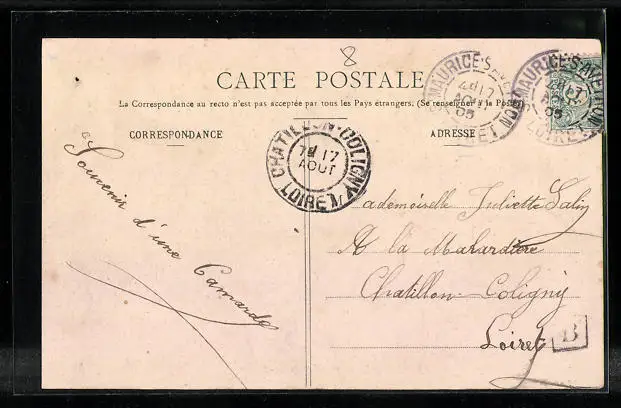 8
CARTE POSTALE
La Correspondance au recto n'est pas acceptée par tous les Pays étrangers. (Se renseigner à la Poste)
CORRESPONDANCE
ADRESSE
MAURICE-S-AVEYRON
17
AOUT
05
LOIRET
MAURICE-S-AVEYRON
05
LOIRET
CHATILLON-COLIGNY
7E 17
AOUT
LOIRET
Souvenir d'une Camarde
ademoiselle Juliette Salin
A la Malardière
Chatillon-Coligny
Loiret
B